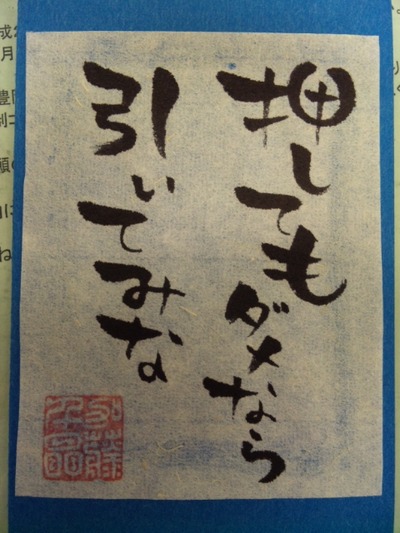 押してもダメなら
引いてみな